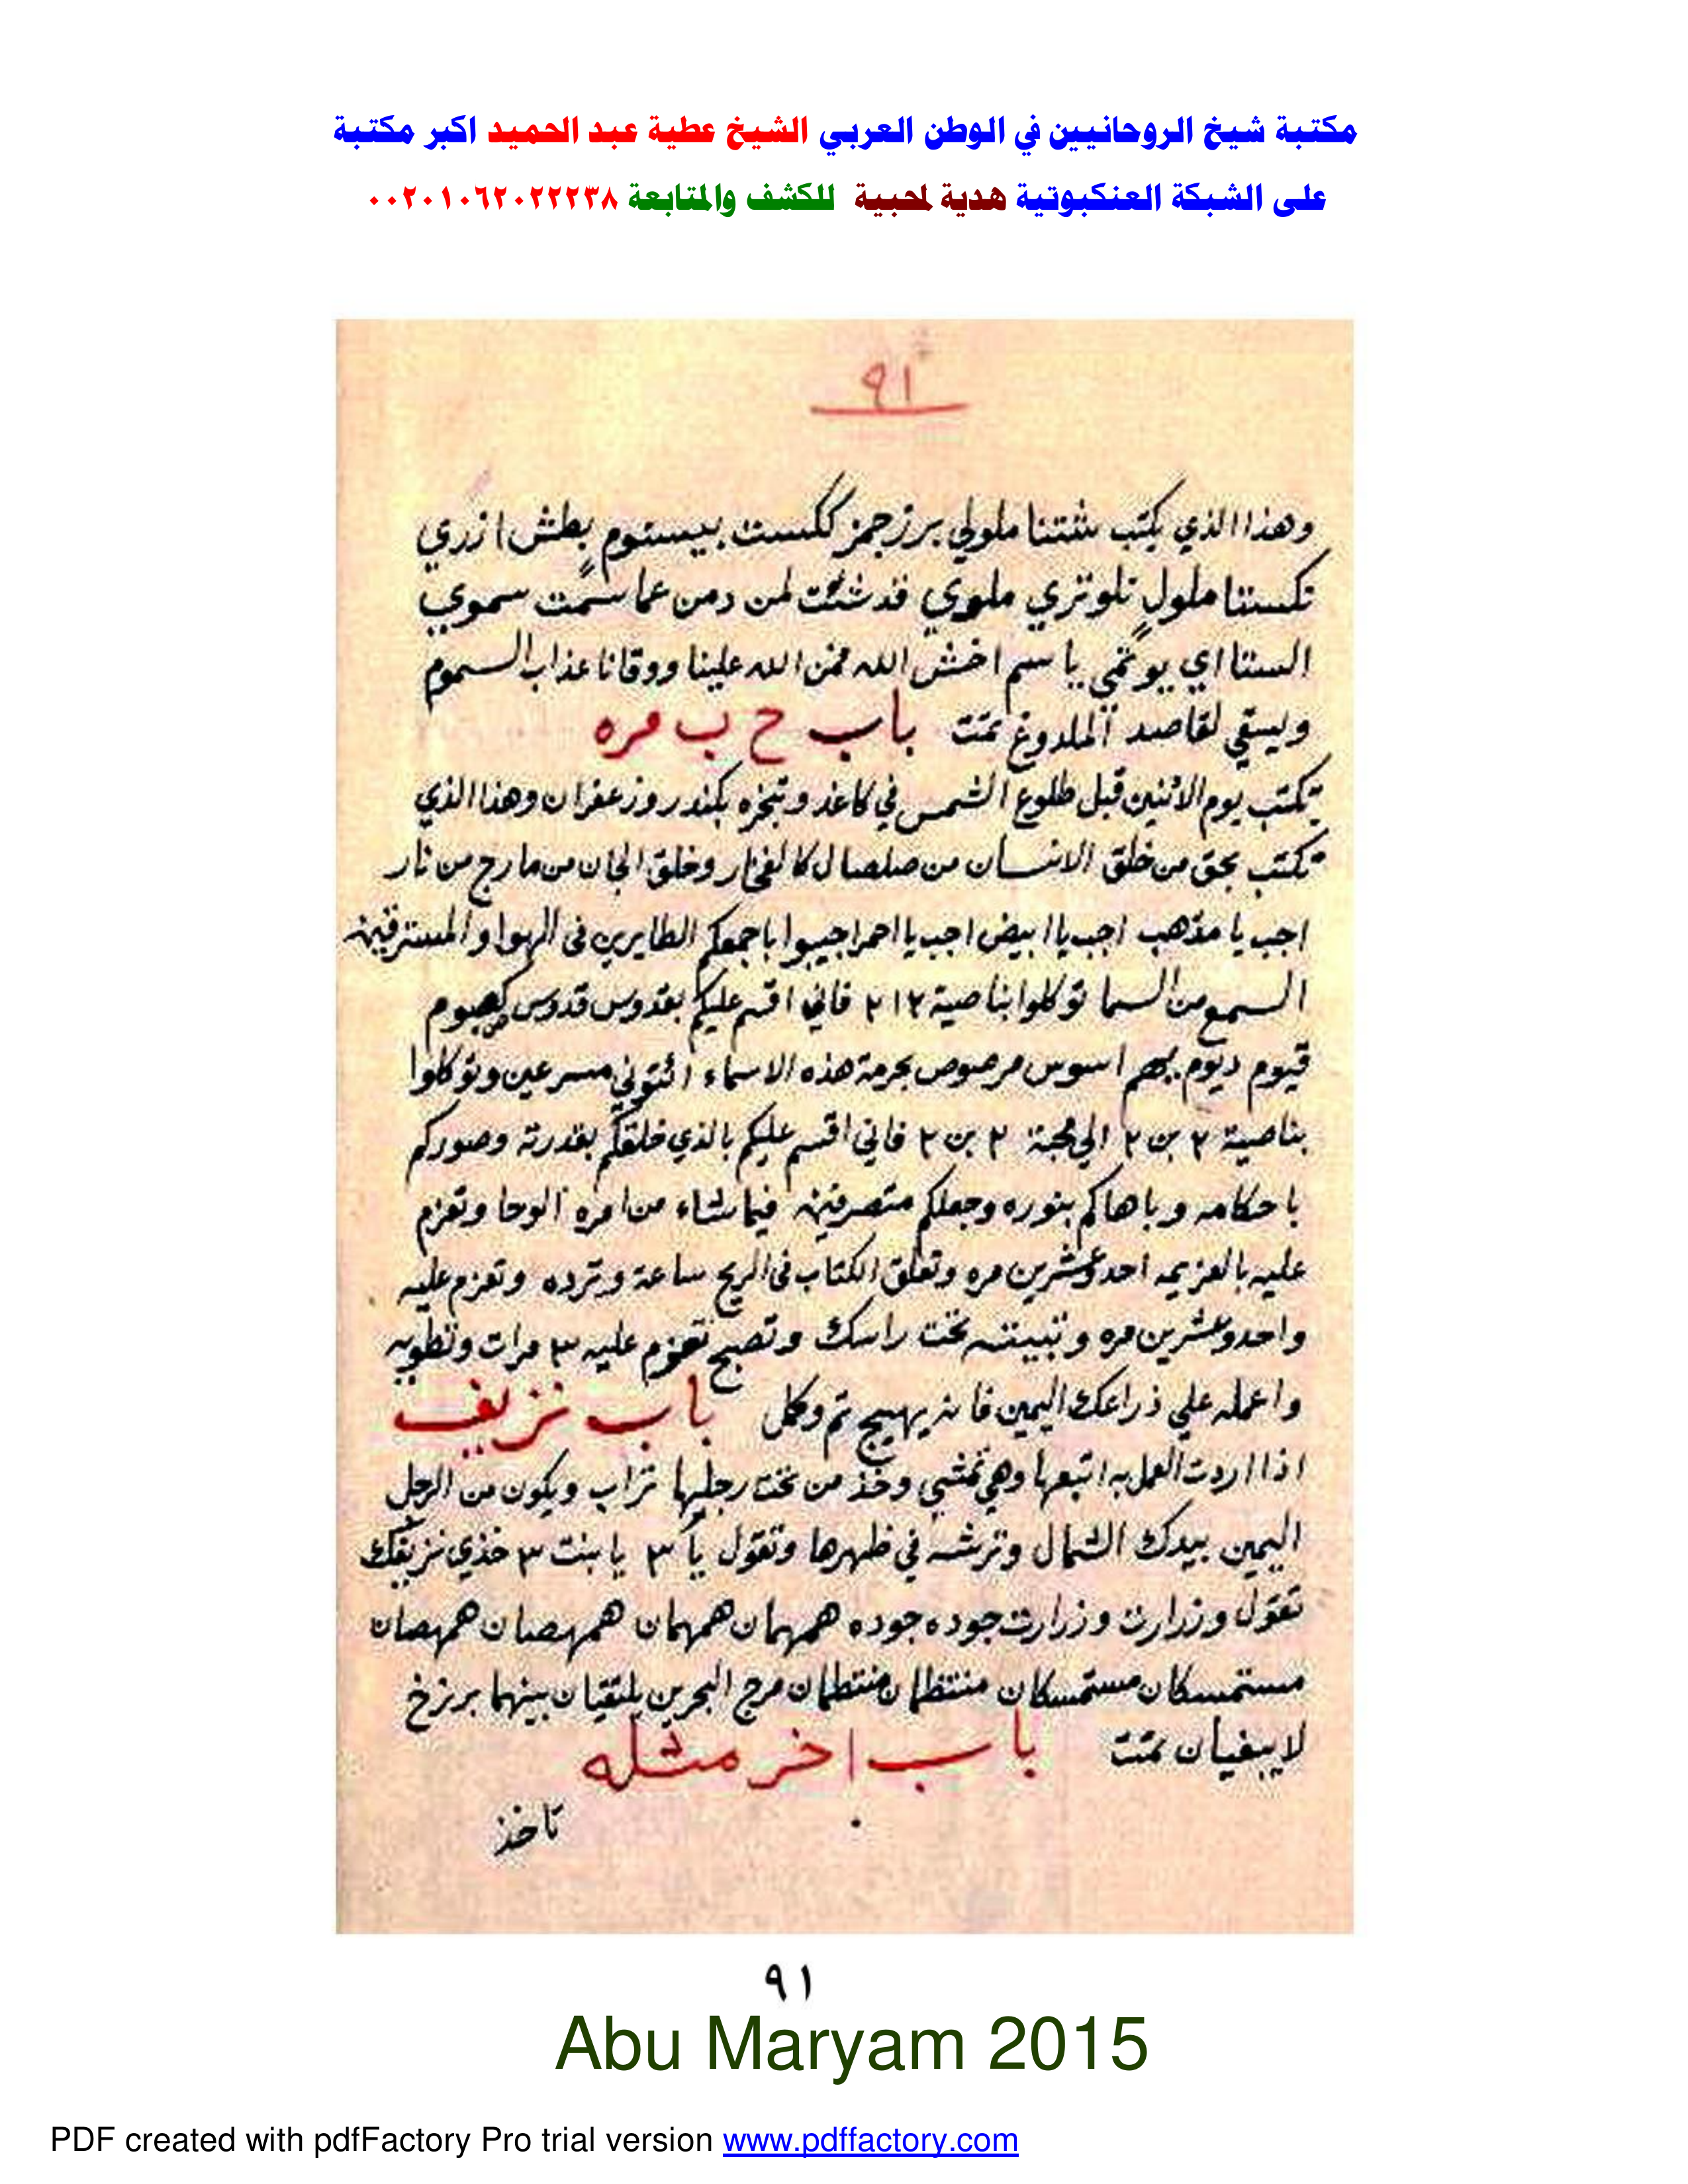 مكتبة شيخ الروحانيين في الوطن العربي الشيخ عطية عبد الحميد اكبر مكتبة
على الشبكة العنكبوتية هدية لمحبية للكشف والمتابعة ٠٠٢٠١٠٦٢٠٢٢٢٣٨
٩١
وهذا الذي يكتب شتتنا ملولي برزجمز ككست بيستوم بطش ازري
تكستنا ملول تلوتزي ملوي قد شئت لمن دمن عما سمت سموي
الستنا اي يوثمي يا سم اخش الله فمن الله علينا ووقانا عذاب السموم
ويسقي لقاصد الملدوغ تمت باب ح ب مره
تكتب يوم الاثنين قبل طلوع الشمس في كاغد وتبخره بكندر وزعفران وهذا الذي
تكتب بحق من خلق الانسان من صلصال كالفخار وخلق الجان من مارج من نار
اجب يا مذهب اجب يا ابيض اجب يا احمر اجيبوا باجمعكم الطايرين فى الهوا والمسترقين
السمع من السما توكلوا بناصية ٢١٢ فاني اقسم عليكم بقدوس قدوس
قيوم ديوم اسوس مرصوص بحرمة هذه الاسماء ائتوني مسرعين وتوكلوا
بناصية ٢ بن ٢ الي محبة ٢ بن ٢ فاني اقسم عليكم بالذي خلقكم بقدرته وصوركم
باحكامه وباهاكم بنوره وجعلكم متصرفين فيما شاء من امره الوحا وتعزم
عليه بالعزيمه احد وعشرين مره وتعلق الكتاب فى الريح ساعة وترده وتعزم عليه
واحد وعشرين مره وتبيته تحت راسك وتصبح تعزم عليه ٣ مرات وتطويه
واعمله علي ذراعك اليمين فانه يهيج تم وكمل باب نزيف
اذا اردت العمل به اتبعها وهي تمشي وخذ من تحت رجليها تراب ويكون من الرجل
اليمين بيدك الشمال وترشه في ظهرها وتقول يا ٣ يا بنت ٣ خذي نزيفك
تقول وزرارت وزرارت جوده جوده همهمان همهمان همهصان همهصان
مستمسكان مستمسكان منتظمان منتظمان مرج البحرين يلتقيان بينهما برزخ
لا يبغيان تمت باب اخر مثله
تاخذ
٩١
Abu Maryam 2015
PDF created with pdfFactory Pro trial version www.pdffactory.com